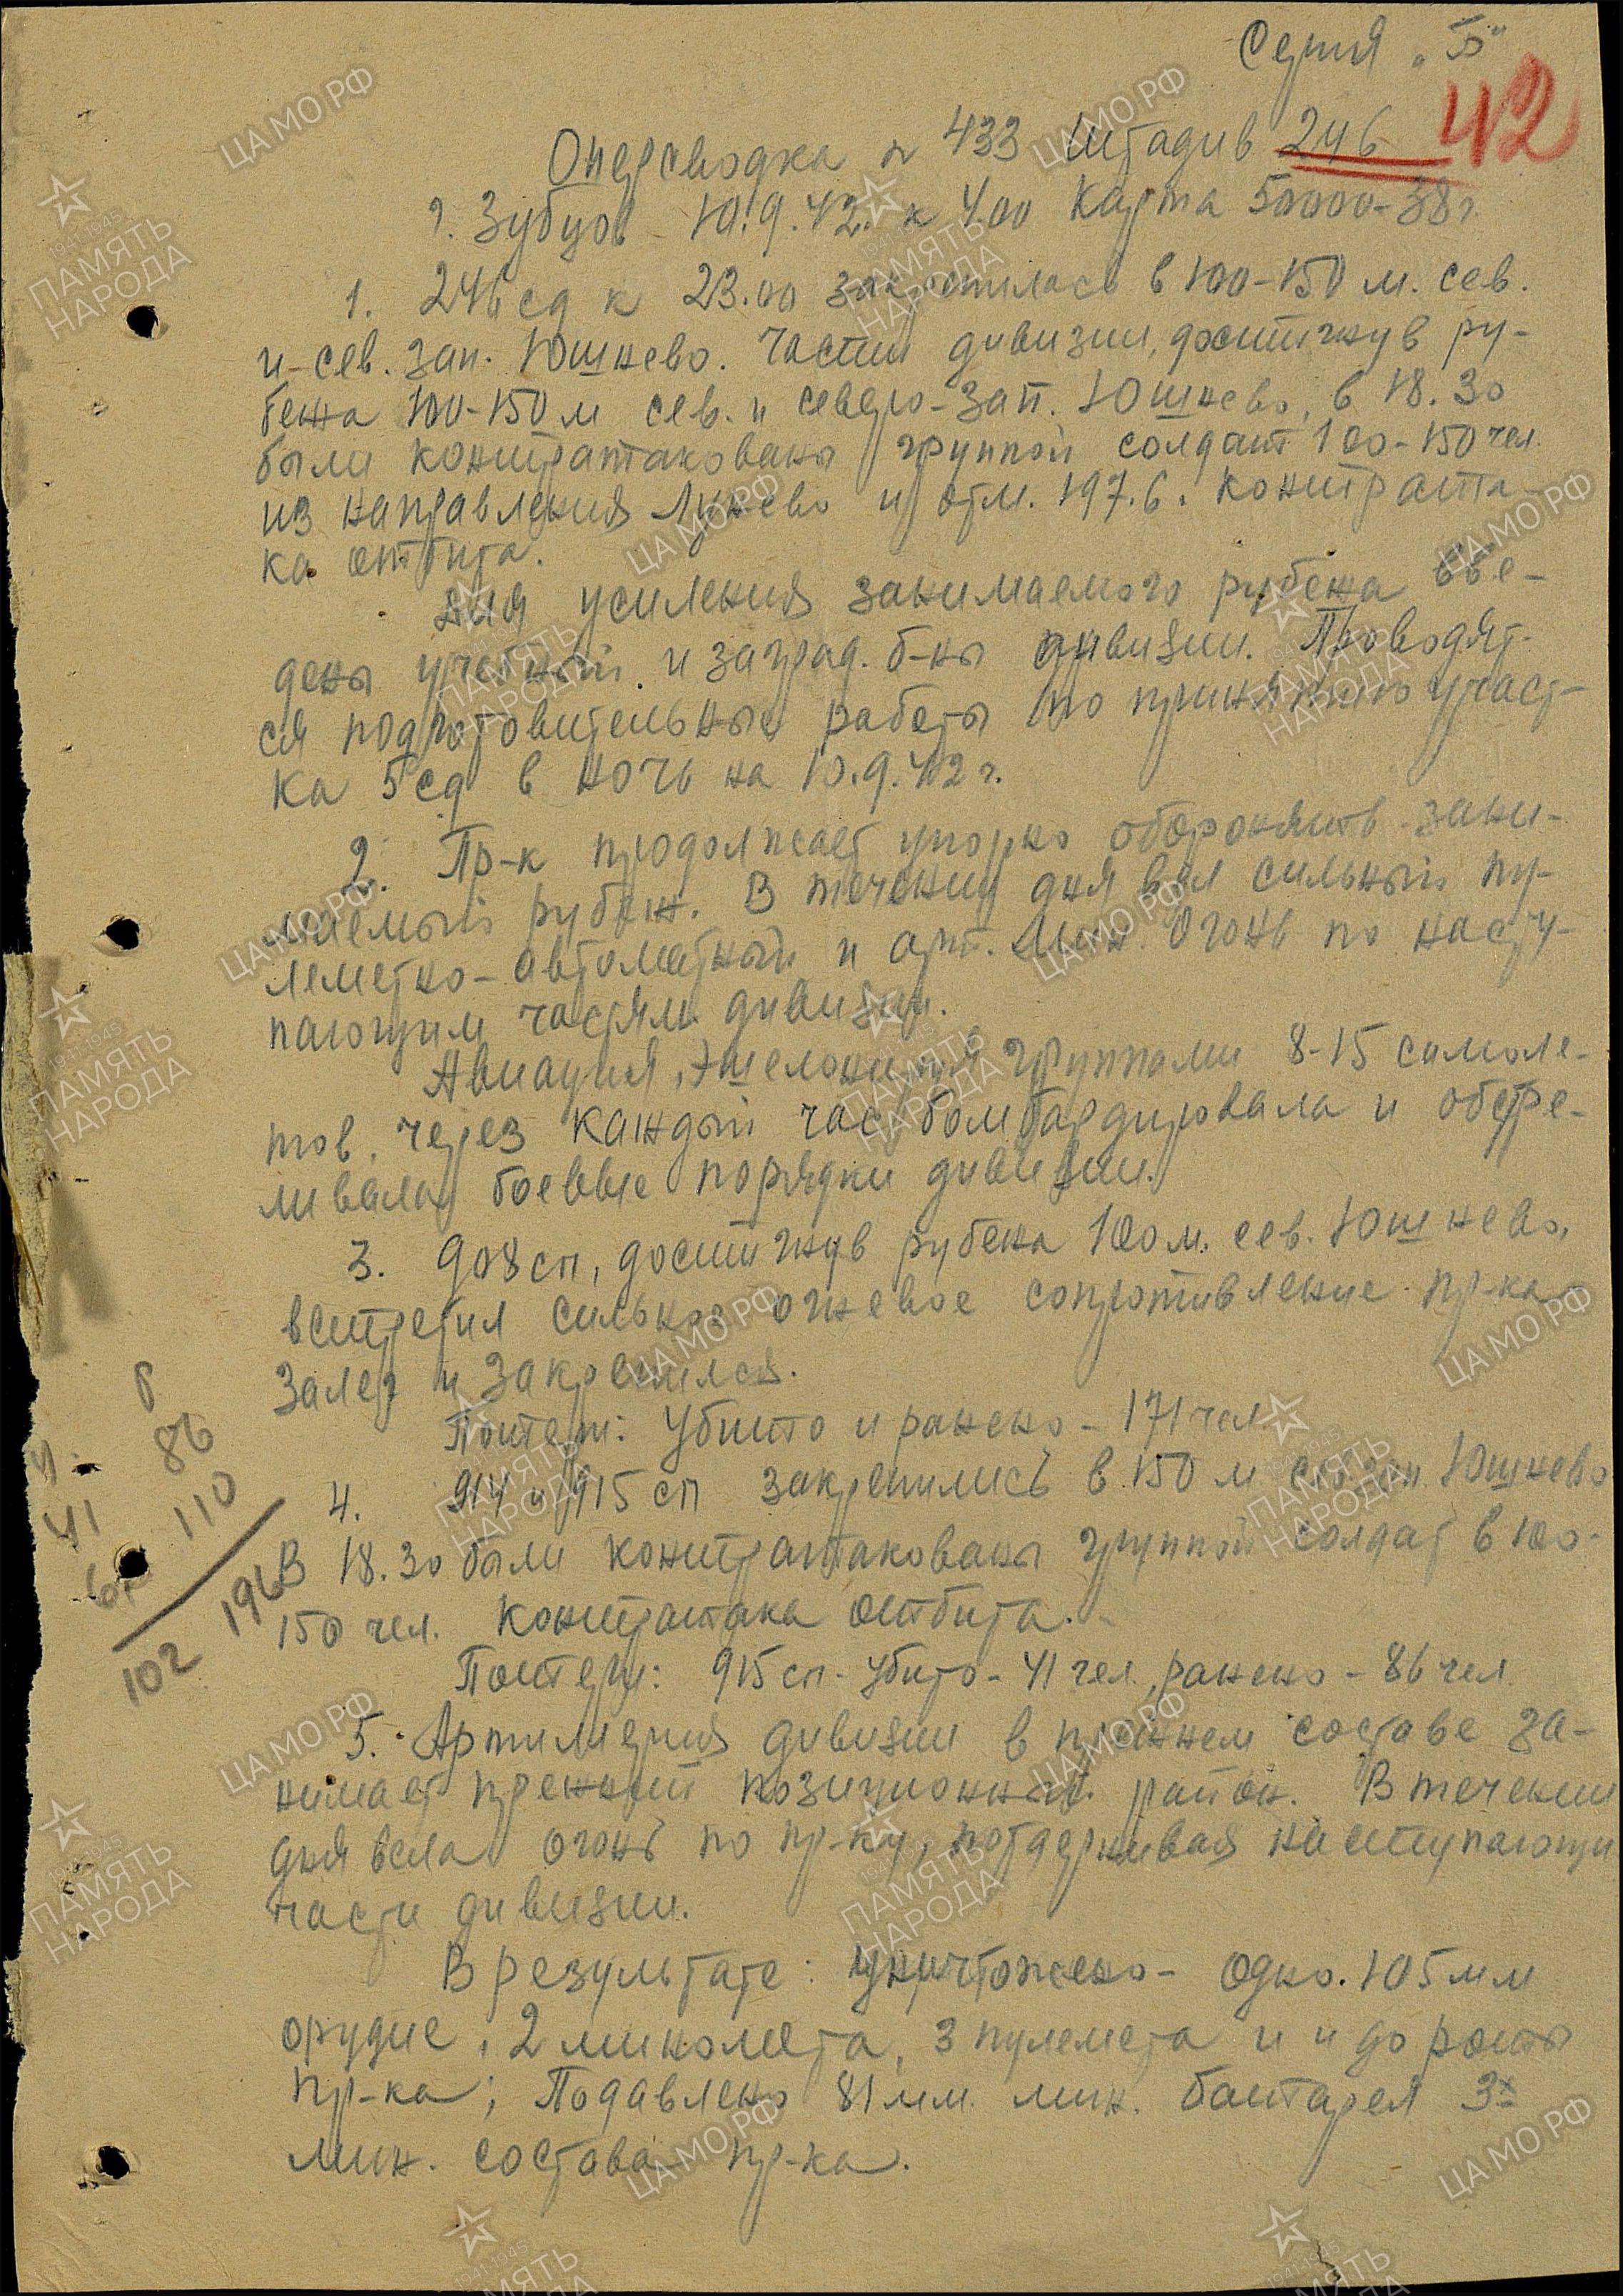 Серия „Б"
42
Оперсводка № 433 Штадив 246
г. Зубцов 10.9.42. к 4.00 Карта 50000-38г.
1. 246 сд к 23.00 закрепилась в 100-150 м. сев.
и-сев. зап. Юшнево. Части дивизии, достигнув ру-
бежа 100-150 м сев. и северо-зап. Юшнево, в 18.30
были контратакованы группой солдат 100-150 чел.
из направления Лунево и отм. 197.6. Контрата-
ка отбита.
Для усиления занимаемого рубежа вве-
дены учебный и заград. б-ны дивизии. Проводят-
ся подготовительные работы по принятию участ-
ка 5 сд в ночь на 10.9.42 г.
2. Пр-к продолжает упорно оборонять зани-
маемый рубеж. В течении дня вел сильный пу-
леметно-автоматный и арт. мин. огонь по насту-
пающим частям дивизии.
Авиация, эшелонируя группами 8-15 самоле-
тов, через каждый час бомбардировала и обстре-
ливала боевые порядки дивизии.
3. 908 сп, достигнув рубежа 100 м. сев. Юшнево,
встретил сильное огневое сопротивление пр-ка
Залег и закрепился.
Потери: Убито и ранено - 171 чел
4. 914 и 915 сп закрепились в 150 м сев. зап. Юшнево
В 18.30 были контратакованы группой солдат в 100-
150 чел. Контратака отбита. -
Потери: 915 сп - убито - 41 чел, ранено - 86 чел
5. Артиллерия дивизии в прежнем составе за-
нимает прежний позиционный район. В течении
дня вела огонь по пр-ку, поддерживая наступающи
части дивизии.
В результате: уничтожено - одно. 105 мм
орудие, 2 миномета, 3 пулемета и и до роты
пр-ка; Подавлено 81 мм. мин. батарея 3х
мин. состава пр-ка.
86
41 110
102 196